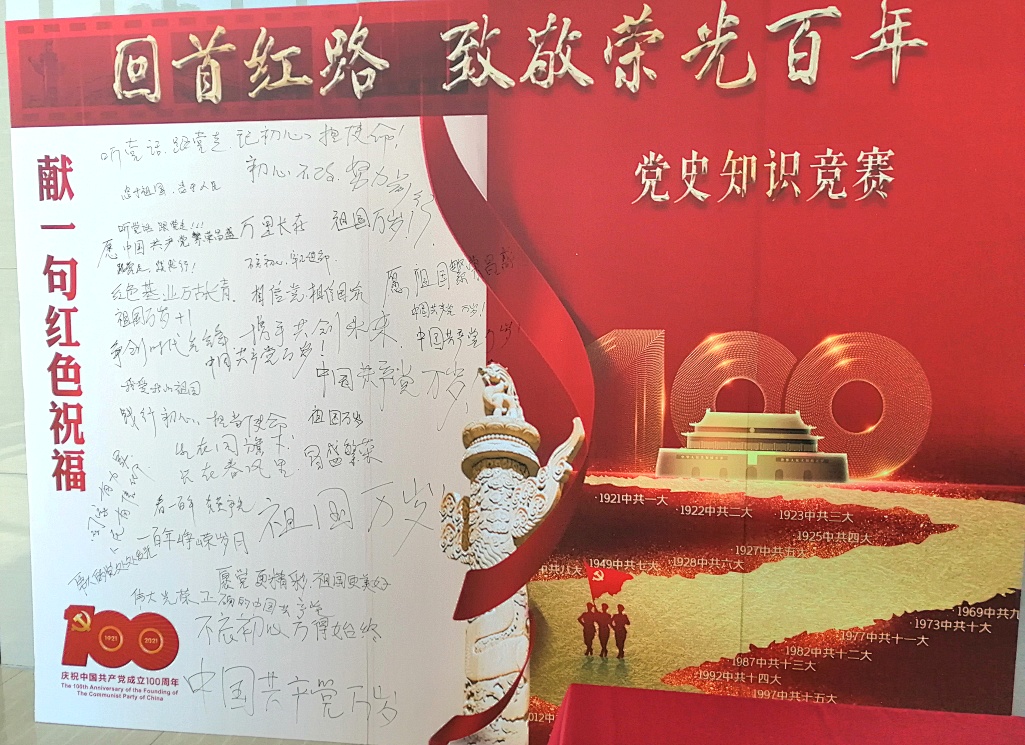 回首红路 致敬荣光百年
党史知识竞赛
献一句红色祝福
听党话,跟党走,记初心,担使命!
初心不改,努力前行
忠于祖国,忠于人民
听党话 跟党走!!!
万里长在
祖国万岁!
愿中国共产党繁荣昌盛
红色基业万古长青
相信党相信国家
愿祖国繁荣昌盛
祖国万岁+1
中国共产党 万岁!
争创时代先锋
携手共创未来
中国共产党万岁!
中国共产党万岁!
中国共产党万岁!
我爱我的祖国
践行初心,担当使命
祖国万岁
生在国旗下
长在春风里
国盛繁荣
祖国万岁!
一百年峥嵘岁月
愿党更精彩,祖国更美好
伟大光荣正确的中国共产党
不忘初心方得始终
中国共产党万岁
100
1921
2021
庆祝中国共产党成立100周年
The 100th Anniversary of the Founding of
The Communist Party of China
100
·1921中共一大
·1922中共二大
·1923中共三大
·1925中共四大
·1927中共五大
·1928中共六大
·1949中共七大
中共八大
·1969中共九
·1973中共十大
·1977中共十一大
·1982中共十二大
·1987中共十三大
·1992中共十四大
·1997中共十五大
2012中